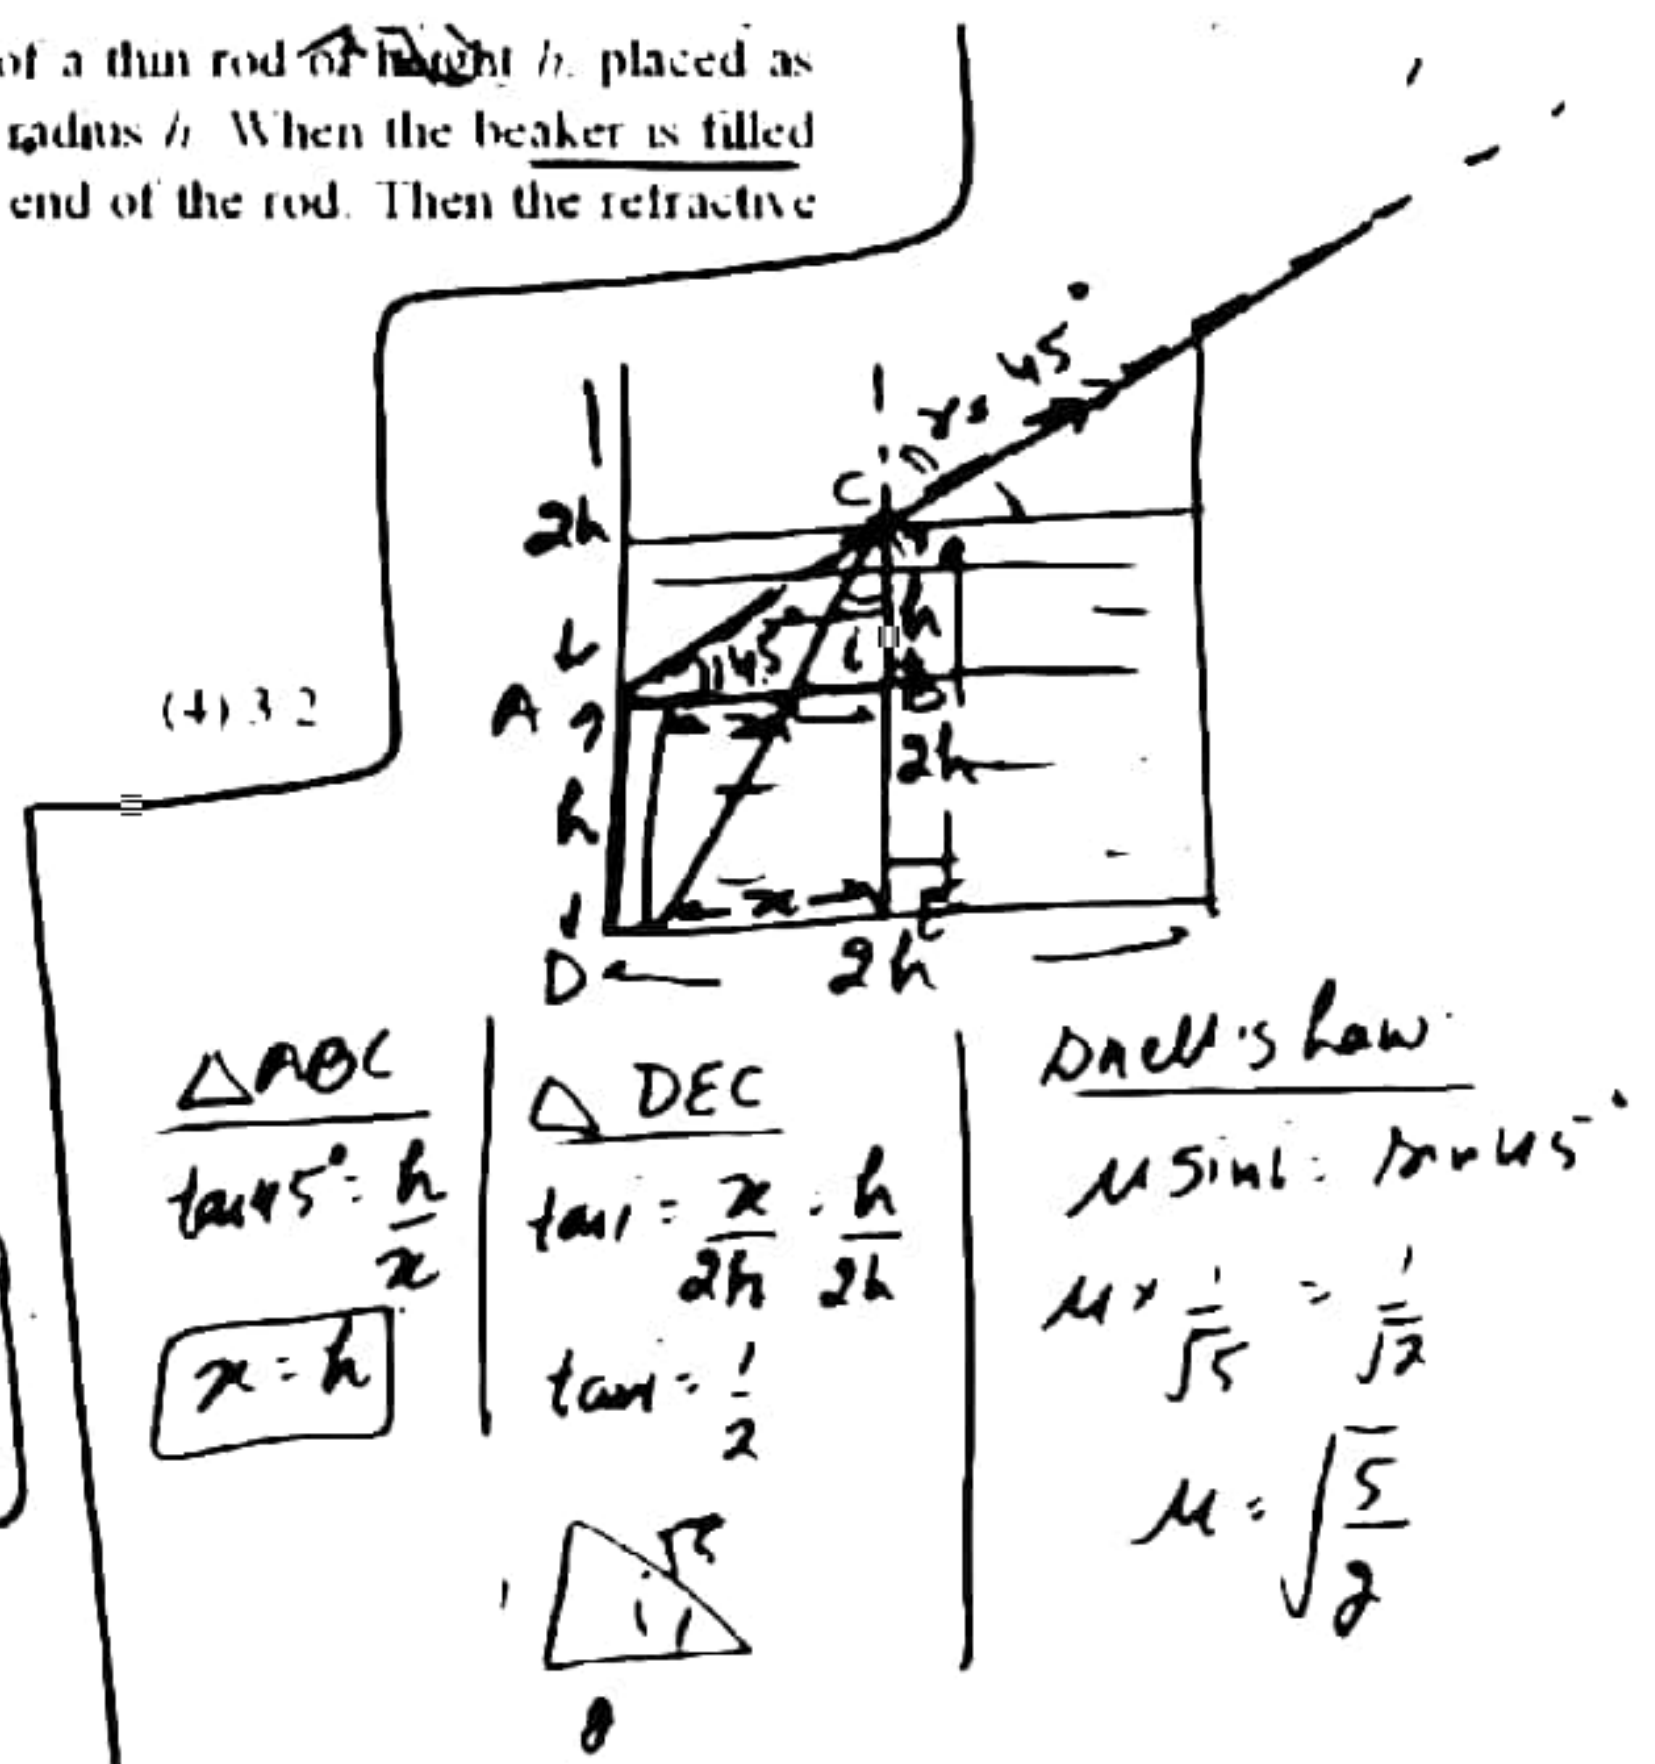 of a thin rod of height h. placed as
radius h. When the beaker is filled
end of the rod. Then the refractive
(4) 3 2
45°
r =
C
2h
h
45°
i
h
A
B
x
2h
h
x
E
D
2h
△ABC
tan45° = h/x
x = h
△ DEC
tan i = x/2h = h/2h
tan i = 1/2
√5
i
1
Snell's Law
μ sin i = sin 45°
μ × 1/√5 = 1/√2
μ = √5/2